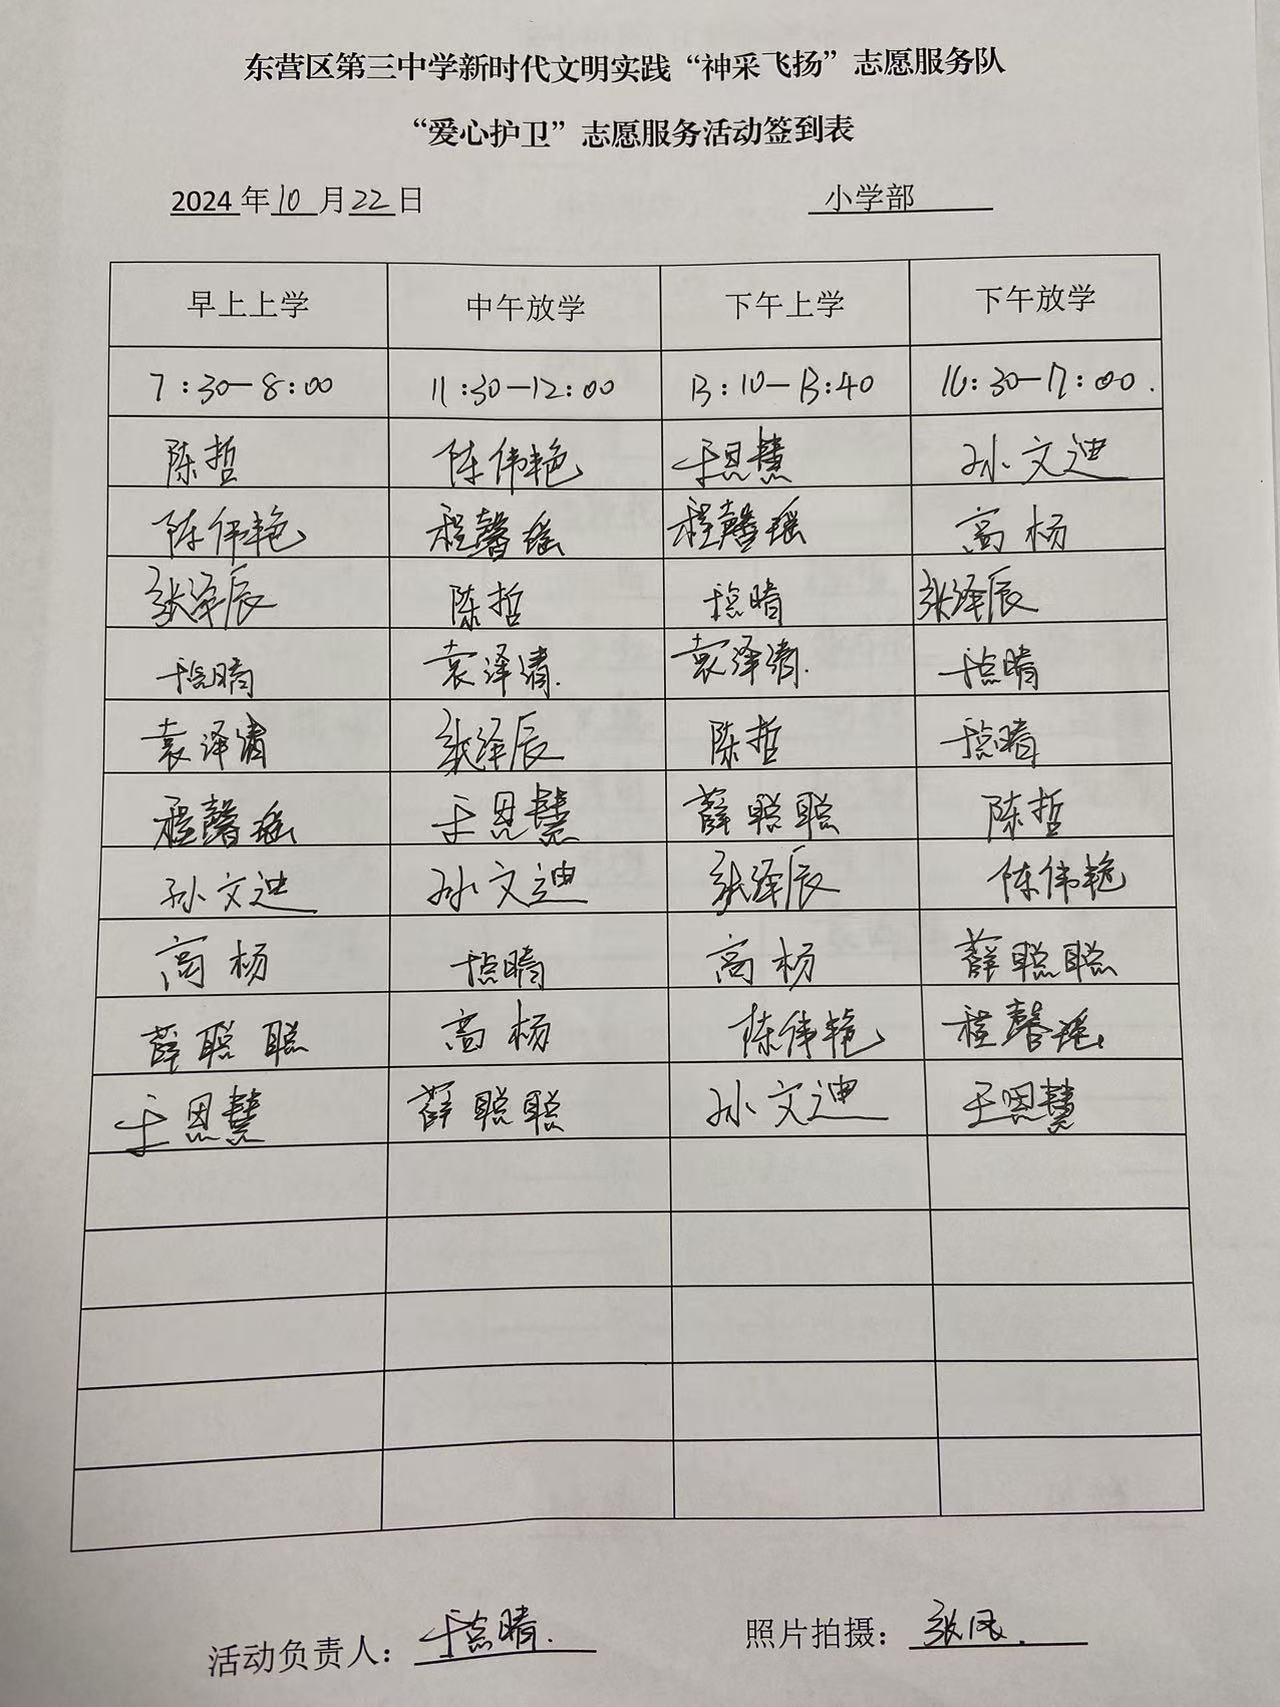 东营区第三中学新时代文明实践“神采飞扬”志愿服务队
“爱心护卫”志愿服务活动签到表
2024 年 10 月 22 日 小学部
早上上学 中午放学 下午上学 下午放学
7:30-8:00 11:30-12:00 13:10-13:40 16:30-17:00.
陈哲 陈伟艳 于恩慧 孙文迪
陈伟艳 程馨瑶 程馨瑶 高杨
张泽辰 陈哲 于点晴 张泽辰
于点晴 袁泽清. 袁泽清. 于点晴
袁泽清 张泽辰 陈哲 于点晴
程馨瑶 于恩慧 薛聪聪 陈哲
孙文迪 孙文迪 张泽辰 陈伟艳
高杨 于点晴 高杨 薛聪聪
薛聪聪 高杨 陈伟艳 程馨瑶
于恩慧 薛聪聪 孙文迪 于恩慧
活动负责人: 于点晴. 照片拍摄: 张